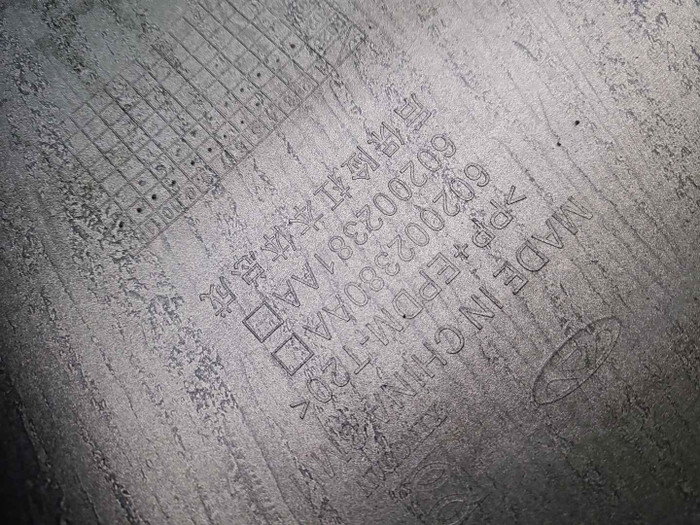 MADE IN CHINA
>PP+EPDM-T20<
602002380AA
602002381AA
后保险杠本体总成